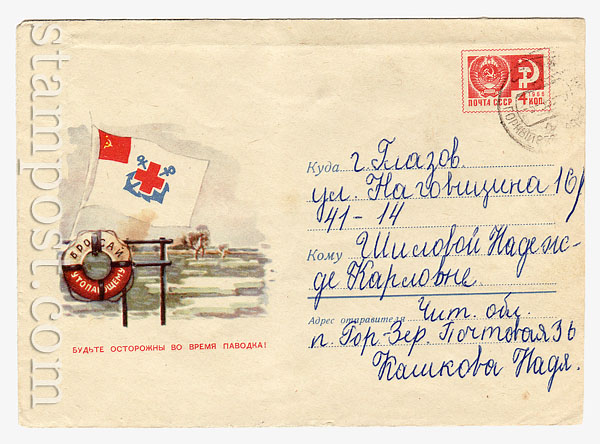 stampost.com
ПОЧТА СССР
1966
4 КОП.
Куда г. Глазов
ул. Наговицина 16/
41-14
Кому Шиловой Надеж-
де Карловне.
Адрес отправителя Чит. обл.
п. Гор-Зер. Почтовая 36
Кашкова Надя.
БРОСАЙ
УТОПАЮЩЕМУ
БУДЬТЕ ОСТОРОЖНЫ ВО ВРЕМЯ ПАВОДКА!